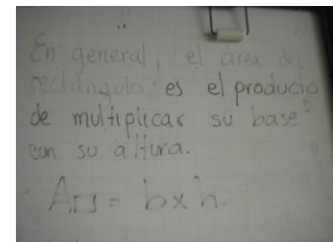 En general, el área del
rectángulo es el producto
de multiplicar su base
con su altura.
A▭ = b x h.